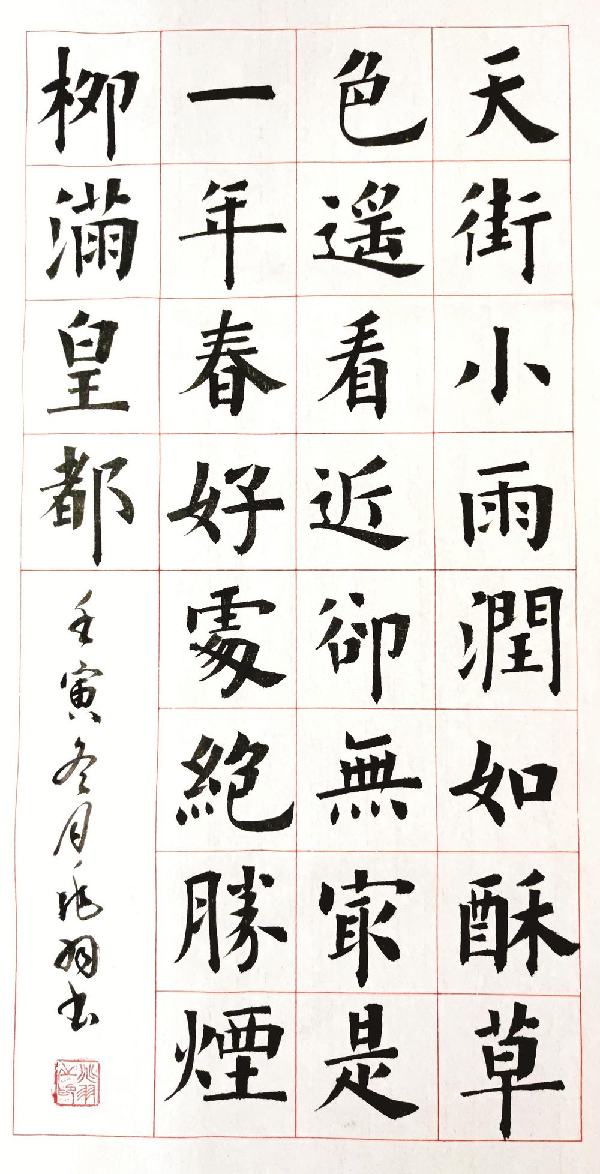 天街小雨潤如酥草
色遥看近卻無冣是
一年春好處絶勝煙
柳滿皇都
壬寅冬月兆羽书